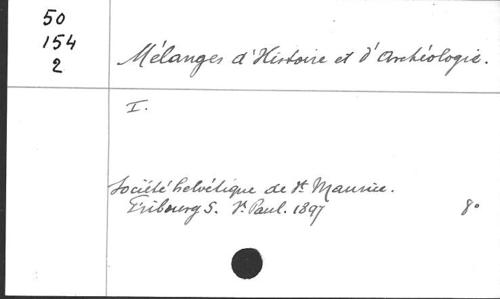 50
154
2
Mélanges d'Histoire et d'Archéologie.
I.
Société helvétique de St. Maurice.
Fribourg S. St. Paul. 1897
8°